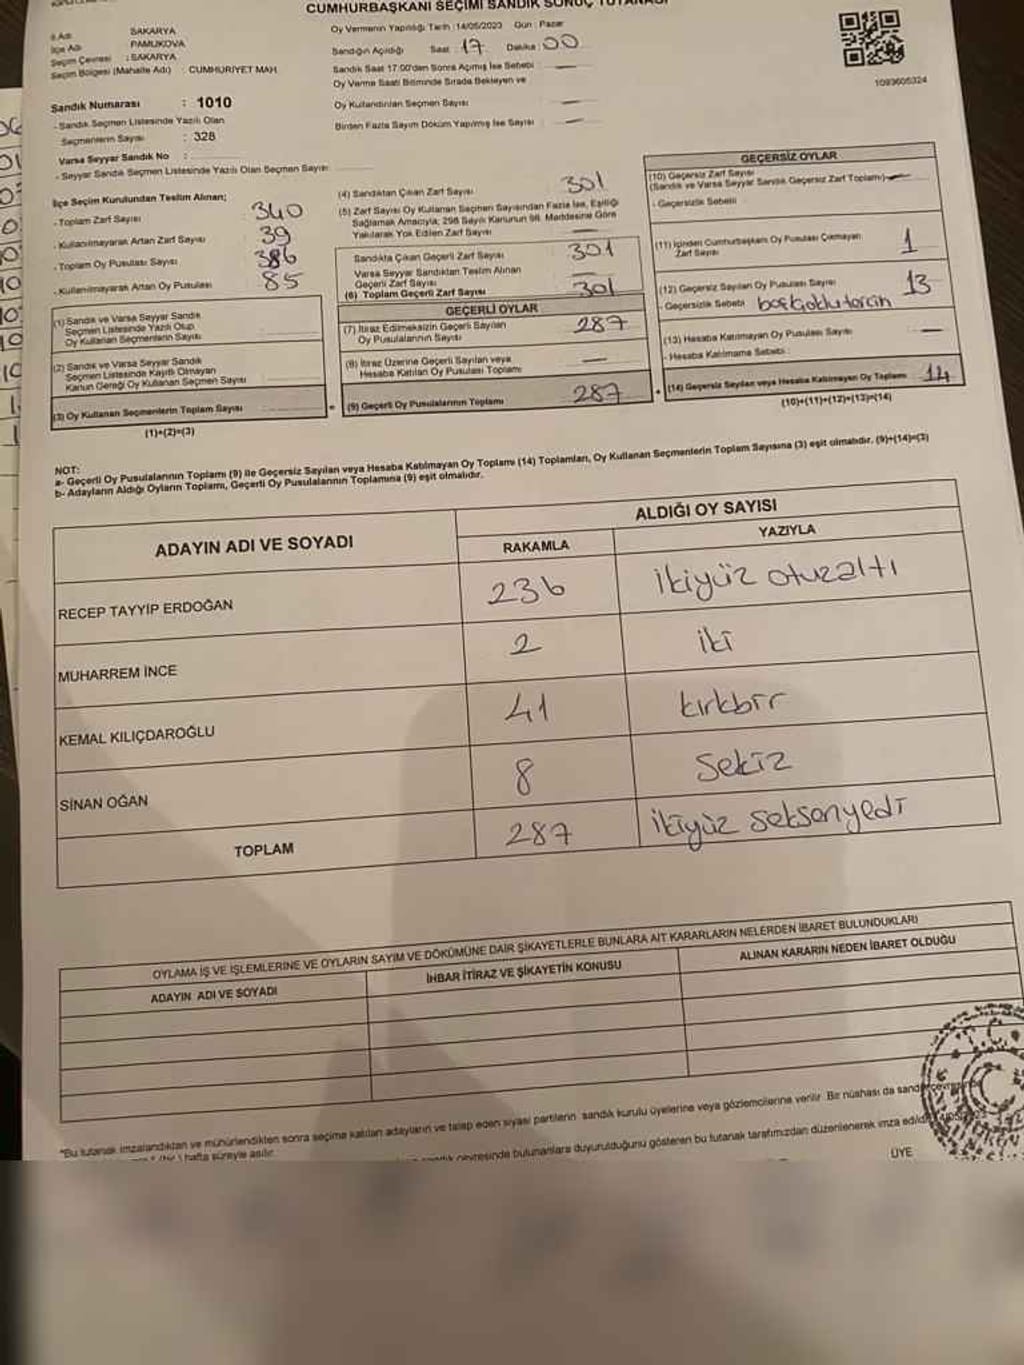 CUMHURBAŞKANI SEÇİMİ SANDIK SONUÇ TUTANAĞI
İl Adı SAKARYA
İlçe Adı PAMUKOVA
Seçim Çevresi : SAKARYA
Seçim Bölgesi (Mahalle Adı) : CUMHURİYET MAH.
Sandık Numarası : 1010
- Sandık Seçmen Listesinde Yazılı Olan
Seçmenlerin Sayısı : 328
Varsa Seyyar Sandık No :
- Seyyar Sandık Seçmen Listesinde Yazılı Olan Seçmen Sayısı
Oy Vermenin Yapıldığı Tarih :14/05/2023 Gün : Pazar
Sandığın Açıldığı Saat : 17 Dakika : 00
Sandık Saat 17:00'den Sonra Açılmış İse Sebebi : —
Oy Verme Saati Bitiminde Sırada Bekleyen ve
Oy Kullandırılan Seçmen Sayısı : —
Birden Fazla Sayım Döküm Yapılmış İse Sayısı : —
1093605324
İlçe Seçim Kurulundan Teslim Alınan;
- Toplam Zarf Sayısı 340
- Kullanılmayarak Artan Zarf Sayısı 39
- Toplam Oy Pusulası Sayısı 386
- Kullanılmayarak Artan Oy Pusulası 85
(1) Sandık ve Varsa Seyyar Sandık
Seçmen Listesinde Yazılı Olup
Oy Kullanan Seçmenlerin Sayısı
(2) Sandık ve Varsa Seyyar Sandık
Seçmen Listesinde Kayıtlı Olmayan
Kanun Gereği Oy Kullanan Seçmen Sayısı
(3) Oy Kullanan Seçmenlerin Toplam Sayısı
(1)+(2)=(3)
(4) Sandıktan Çıkan Zarf Sayısı 301
(5) Zarf Sayısı Oy Kullanan Seçmen Sayısından Fazla İse, Eşitliği
Sağlamak Amacıyla; 298 Sayılı Kanunun 98. Maddesine Göre
Yakılarak Yok Edilen Zarf Sayısı —
Sandıkta Çıkan Geçerli Zarf Sayısı 301
Varsa Seyyar Sandıktan Teslim Alınan
Geçerli Zarf Sayısı —
(6) Toplam Geçerli Zarf Sayısı 301
GEÇERLİ OYLAR
(7) İtiraz Edilmeksizin Geçerli Sayılan
Oy Pusulalarının Sayısı 287
(8) İtiraz Üzerine Geçerli Sayılan veya
Hesaba Katılan Oy Pusulası Toplamı —
(9) Geçerli Oy Pusulalarının Toplamı 287
GEÇERSİZ OYLAR
(10) Geçersiz Zarf Sayısı
(Sandık ve Varsa Seyyar Sandık Geçersiz Zarf Toplamı) —
- Geçersizlik Sebebi
(11) İçinden Cumhurbaşkanı Oy Pusulası Çıkmayan
Zarf Sayısı 1
(12) Geçersiz Sayılan Oy Pusulası Sayısı 13
- Geçersizlik Sebebi
(13) Hesaba Katılmayan Oy Pusulası Sayısı —
- Hesaba Katılmama Sebebi :
(14) Geçersiz Sayılan veya Hesaba Katılmayan Oy Toplamı 14
(10)+(11)+(12)+(13)=(14)
NOT:
a- Geçerli Oy Pusulalarının Toplamı (9) ile Geçersiz Sayılan veya Hesaba Katılmayan Oy Toplamı (14) Toplamları, Oy Kullanan Seçmenlerin Toplam Sayısına (3) eşit olmalıdır. (9)+(14)=(3)
b- Adayların Aldığı Oyların Toplamı, Geçerli Oy Pusulalarının Toplamına (9) eşit olmalıdır.
ADAYIN ADI VE SOYADI
ALDIĞI OY SAYISI
RAKAMLA YAZIYLA
RECEP TAYYİP ERDOĞAN 236 ikiyüz otuzaltı
MUHARREM İNCE 2 iki
KEMAL KILIÇDAROĞLU 41 kırkbir
SİNAN OĞAN 8 Sekiz
TOPLAM 287 ikiyüz seksenyedi
OYLAMA İŞ VE İŞLEMLERİNE VE OYLARIN SAYIM VE DÖKÜMÜNE DAİR ŞİKAYETLERLE BUNLARA AİT KARARLARIN NELERDEN İBARET BULUNDUKLARI
ADAYIN ADI VE SOYADI İHBAR İTİRAZ VE ŞİKAYETİN KONUSU ALINAN KARARIN NEDEN İBARET OLDUĞU
"Bu tutanak imzalandıktan ve mühürlendikten sonra seçime katılan adayların ve talep eden siyasi partilerin sandık kurulu üyelerine veya gözlemcilerine verilir. Bir nüshası da sandık
(bir) hafta süreyle asılır.
sandık çevresinde bulunanlara duyurulduğunu gösteren bu tutanak tarafımızdan düzenlenerek imza edildi.
ÜYE